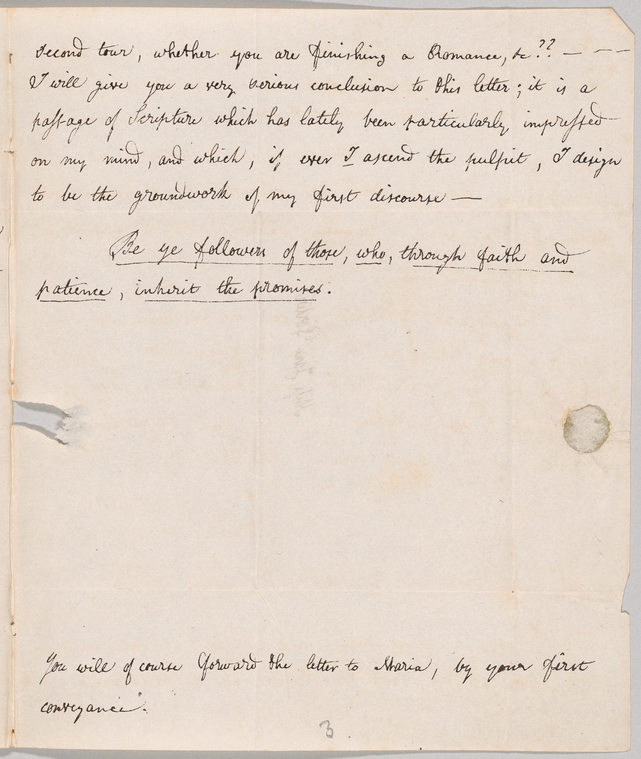 second tour, whether you are finishing a Romance, &c ?? — — —
I will give you a very serious conclusion to this letter; it is a
passage of Scripture which has lately been particularly impressed
on my mind, and which, if ever I ascend the pulpit, I design
to be the groundwork of my first discourse —
Be ye followers of those, who, through faith and
patience, inherit the promises.
You will of course forward the letter to Maria, by your first
conveyance.
3